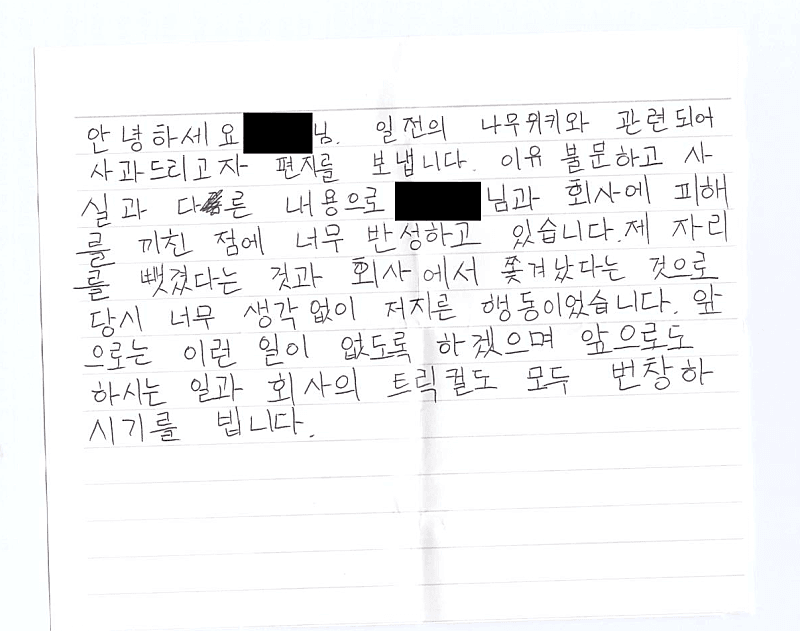 안녕하세요 님. 일전의 나무위키와 관련되어
사과드리고자 편지를 보냅니다. 이유 불문하고 사
실과 다른 내용으로 님과 회사에 피해
를 끼친 점에 너무 반성하고 있습니다. 제 자리
를 뺏겼다는 것과 회사에서 쫓겨났다는 것으로
당시 너무 생각없이 저지른 행동이었습니다. 앞
으로는 이런 일이 없도록 하겠으며 앞으로도
하시는 일과 회사의 트릭컬도 모두 번창하
시기를 빕니다.